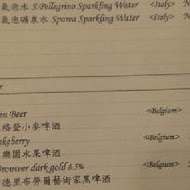 氣泡水 S.Pellegrino Sparkling Water <Italy>
氣泡礦泉水 Sparea Sparkling Water <Italy>
Beer <Belgium>
格登小麥啤酒
<Belgium>
樂園水果啤酒
dark gold 8.5% <Belgium>
德里布勞爾藝術家黑啤酒